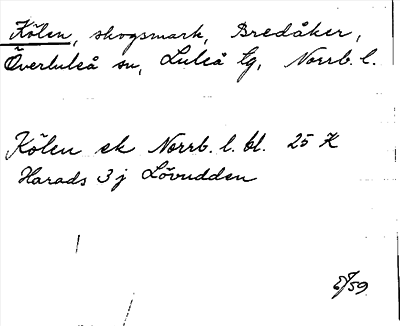 Kölen, skogsmark, Bredåker,
Överluleå sn, Luleå tg, Norrb. l.
Kölen ek Norrb. l. bl. 25 K
Harads 3 j Lövudden
/59